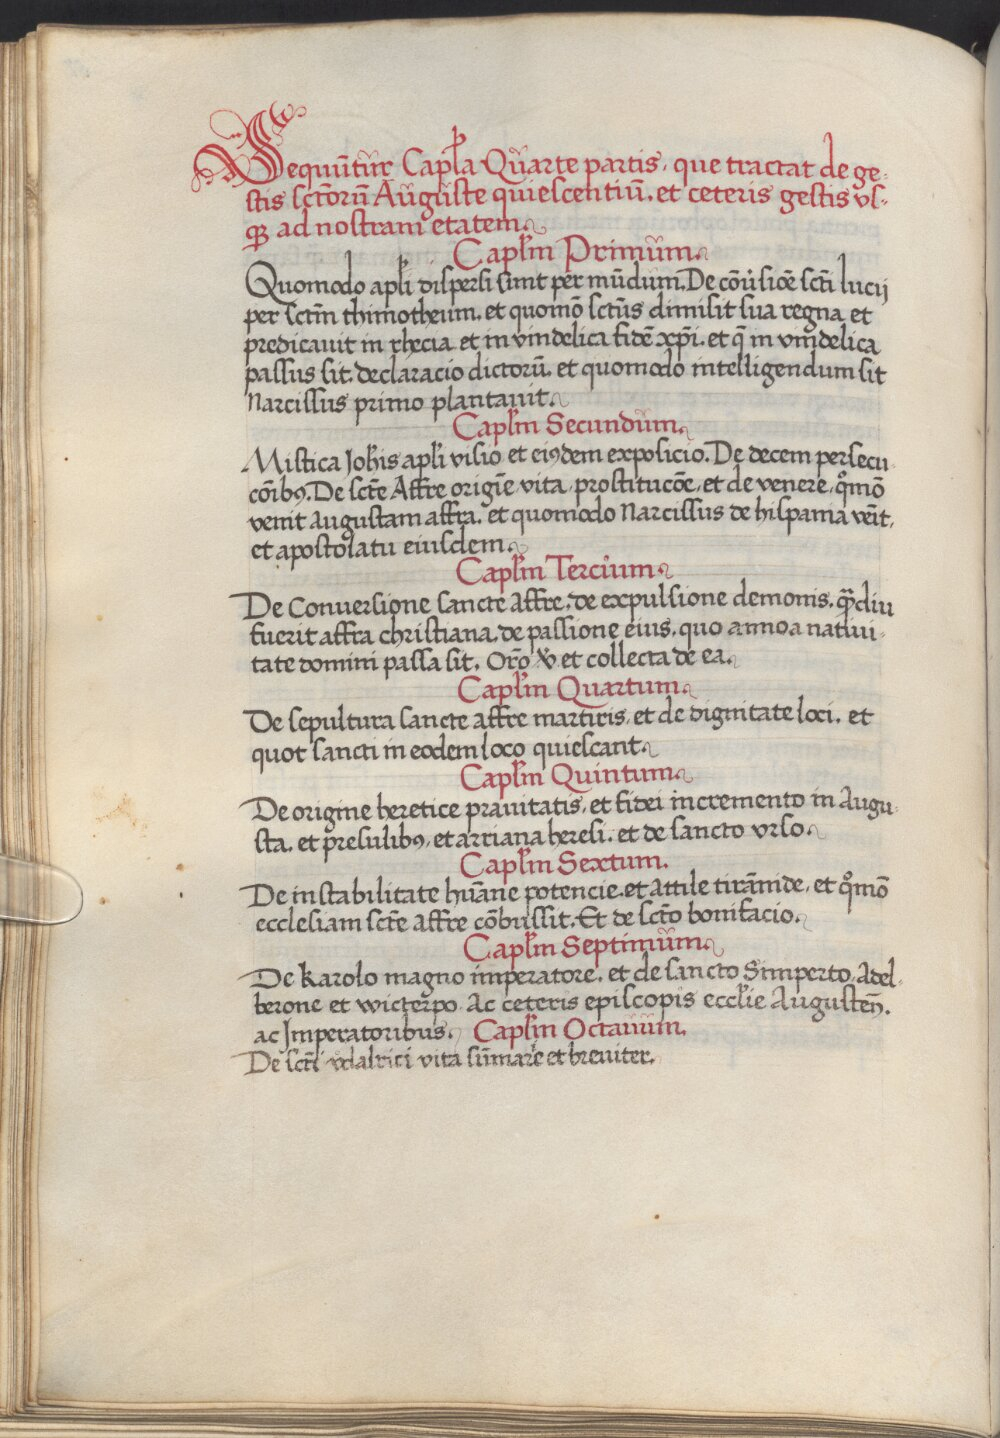 Sequūtur Capl̄a Quarte partis, que tractat de ge-
stis sctōrū Auguste quiescentiū. et ceteris gestis us-
qꝫ ad nostram etatem.
Capl̄m Primum.
Quomodo apl̄i dispersi sunt per mūdum. De cōūsiōe scti lucij
per sctm̄ thimotheum. et quomō sctūs dimisit sua regna et
predicauit in rhecia et in vindelica fidē xp̄i. et q̄ in vindelica
passus sit. declaracio dictorū. et quomodo intelligendum sit
Narcissus primo plantauit.
Capl̄m Secundum.
Mistica Joh̄is apl̄i visio et eiꝰdem exposicio. De decem persecu
cōibꝰ. De sctē Affre origīe vita, prostitucōe, et de venere, qͦmō
venit augustam affra. et quomodo Narcissus de hispania veīt,
et apostolatu eiusdem.
Capl̄m Tercium.
De Conuersione sancte affre. de expulsione demonis. qͣdiu
fuerit affra christiana, de passione eius. quo anno a natiui-
tate domini passa sit. Orō et collecta de ea.
Capl̄m Quartum.
De sepultura sancte affre martiris, et de dignitate loci. et
quot sancti in eodem loco quiescant.
Capl̄m Quintum.
De origine heretice prauitatis, et fidei incremento in Augu-
sta. et presulibꝰ, et arriana heresi. et de sancto vrso.
Capl̄m Sextum.
De instabilitate hūane potencie. et attile tirānide, et qͦmō
ecclesiam sctē affre cōbussit. Et de sctō bonifacio.
Capl̄m Septimum.
De Karolo magno imperatore. et de sancto Simperto, Adel-
berone et wicterpo. Ac ceteris episcopis eccl̄ie Augusteñ.
ac Imperatoribus. Capl̄m Octauum.
De sctī vdalrici vita sūmarie et breuiter.